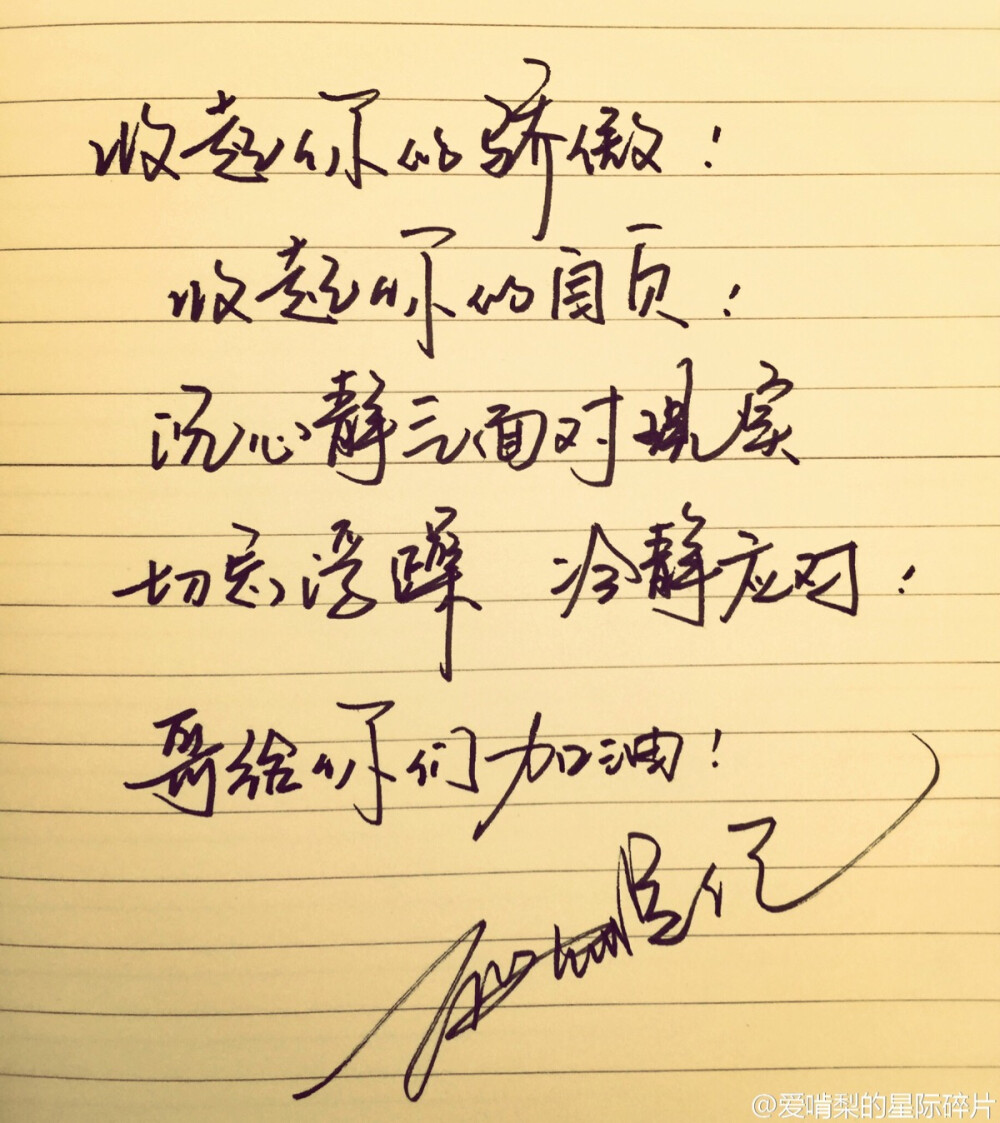 收起你的骄傲！
收起你的自负！
沉心静气面对现实
切忌浮躁 冷静应对！
哥给你们加油！
@爱啃梨的星际碎片